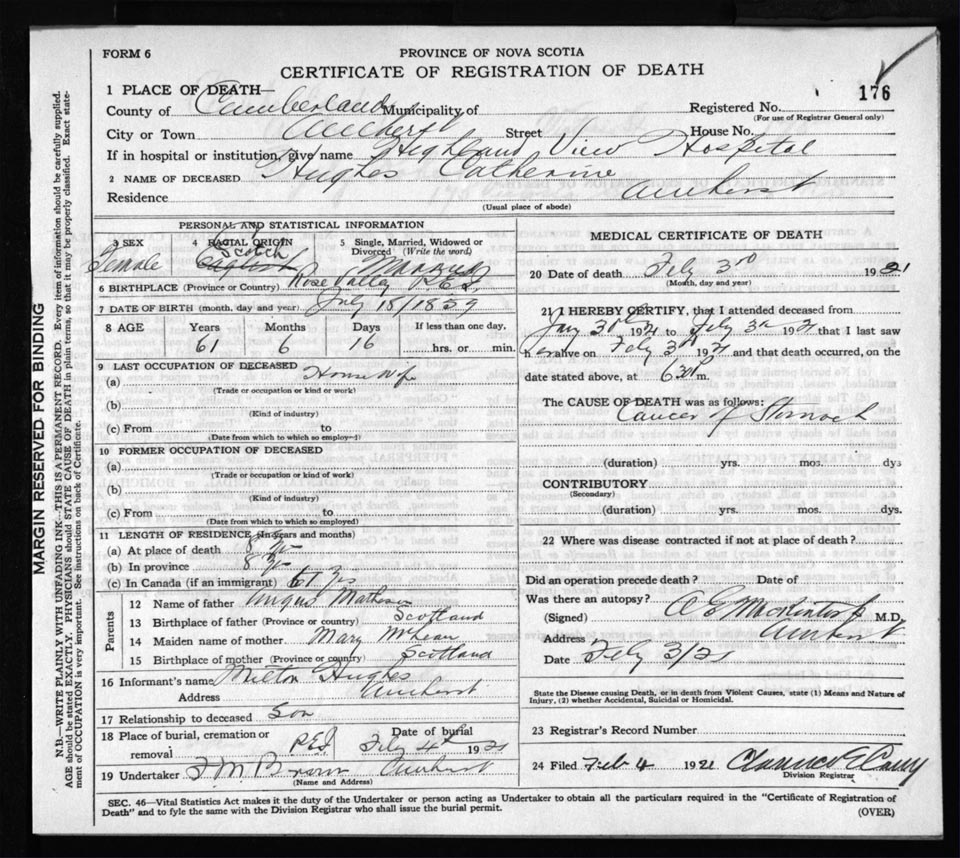 FORM 6
PROVINCE OF NOVA SCOTIA
CERTIFICATE OF REGISTRATION OF DEATH
176
1 PLACE OF DEATH—
County of Cumberland Municipality of Registered No.
(For use of Registrar General only)
City or Town Amherst Street House No.
If in hospital or institution, give name Highland View Hospital
2 NAME OF DECEASED Hughes Catherine
Residence Amherst
(Usual place of abode)
PERSONAL AND STATISTICAL INFORMATION
3 SEX 4 RACIAL ORIGIN 5 Single, Married, Widowed or Divorced (Write the word)
Female Scotch English Married
6 BIRTHPLACE (Province or Country) Rose Valley P.E.I.
7 DATE OF BIRTH (month, day and year) July 18/1859
8 AGE Years Months Days If less than one day,
61 6 16 hrs. or min.
9 LAST OCCUPATION OF DECEASED
(a) House Wife
(Trade or occupation or kind of work)
(b)
(Kind of industry)
(c) From to
(Date from which to which so employed)
10 FORMER OCCUPATION OF DECEASED
(a)
(Trade or occupation or kind of work)
(b)
(Kind of industry)
(c) From to
(Date from which to which so employed)
11 LENGTH OF RESIDENCE (in years and months)
(a) At place of death 8 yrs
(b) In province 8 yrs
(c) In Canada (if an immigrant) yrs
Parents
12 Name of father Angus Matheson
13 Birthplace of father (Province or country) Scotland
14 Maiden name of mother Mary McLean
15 Birthplace of mother (Province or country) Scotland
16 Informant's name Milton Hughes
Address Amherst
17 Relationship to deceased Son
18 Place of burial, cremation or removal PEI Date of burial Feby 4th 1921
19 Undertaker F M Brown Amherst
(Name and Address)
MEDICAL CERTIFICATE OF DEATH
20 Date of death Feby 3rd 1921
(Month, day and year)
21 I HEREBY CERTIFY, that I attended deceased from
Jany 30th 1921 to Feby 3rd 1921 that I last saw
her alive on Feby 3rd 1921 and that death occurred, on the
date stated above, at 630 P m.
The CAUSE OF DEATH was as follows:
Cancer of Stomach
(duration) yrs. mos. dys
CONTRIBUTORY
(Secondary)
(duration) yrs. mos. dys.
22 Where was disease contracted if not at place of death?
Did an operation precede death? Date of
Was there an autopsy?
(Signed) M.D.
Address Amherst
Date Feby 3/21
State the Disease causing Death, or in death from Violent Causes, state (1) Means and Nature of
Injury, (2) whether Accidental, Suicidal or Homicidal.
23 Registrar's Record Number
24 Filed Feb 4 1921
Division Registrar
SEC. 46—Vital Statistics Act makes it the duty of the Undertaker or person acting as Undertaker to obtain all the particulars required in the "Certificate of Registration of
Death" and to fyle the same with the Division Registrar who shall issue the burial permit.
(OVER)
MARGIN RESERVED FOR BINDING
N.B.—WRITE PLAINLY WITH UNFADING INK—THIS IS A PERMANENT RECORD. Every item of information should be carefully supplied.
AGE should be stated EXACTLY. PHYSICIANS should STATE CAUSE OF DEATH in plain terms, so that it may be properly classified. Exact state-
ment of OCCUPATION is very important. See instructions on back of Certificate.